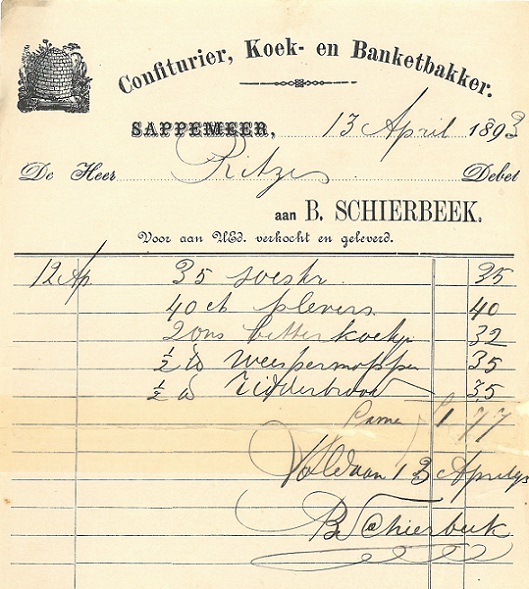 Confiturier, Koek- en Banketbakker.
SAPPEMEER, 13 April 1893
De Heer Ritzes Debet
aan B. SCHIERBEEK.
Voor aan UEd. verkocht en geleverd.
12 Ap 35 35
40 ct plevers 40
2 ons bitterkoekjes 32
½ ℔ Weespermoppen 35
½ ℔ Ridderbrood 35
Same 1 77
Voldaan 13 April 93
B Schierbeek